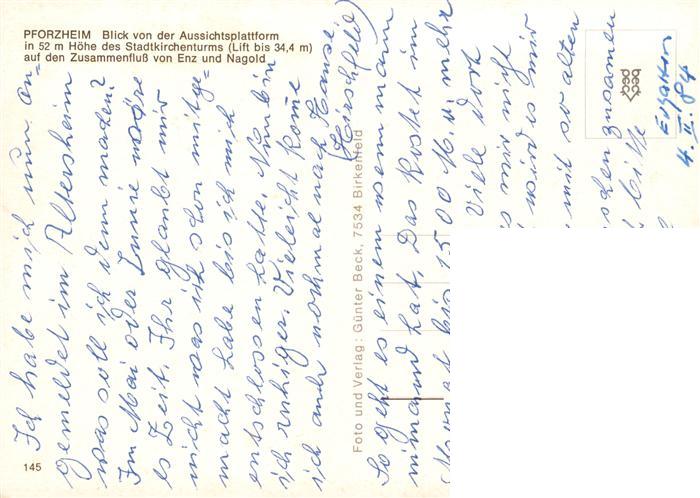 PFORZHEIM Blick von der Aussichtsplattform
in 52 m Höhe des Stadtkirchenturms (Lift bis 34,4 m)
auf den Zusammenfluß von Enz und Nagold
Ich habe mich nun an=
gemeldet im Altersheim
was soll ich denn machen?
Im Mai oder Junie wäre
es Zeit. Ihr glaubt mir
nicht was ich schon mitge-
macht habe bis ich mich
entschlossen hatte. Nun bin
ich ruhiger. Vieleicht kome
ich auch nochmal nach Hause
(Hirschfeld)
Foto und Verlag: Günter Beck, 7534 Birkenfeld
So geht es einem wenn man
nimand hat. Das kostet im
Monat bis 1500 M. u. mehr
Viele dort
s mir nicht
wird es mir
mit so alten
schen zusamen
bitte
beck
beck
Erhalten
145